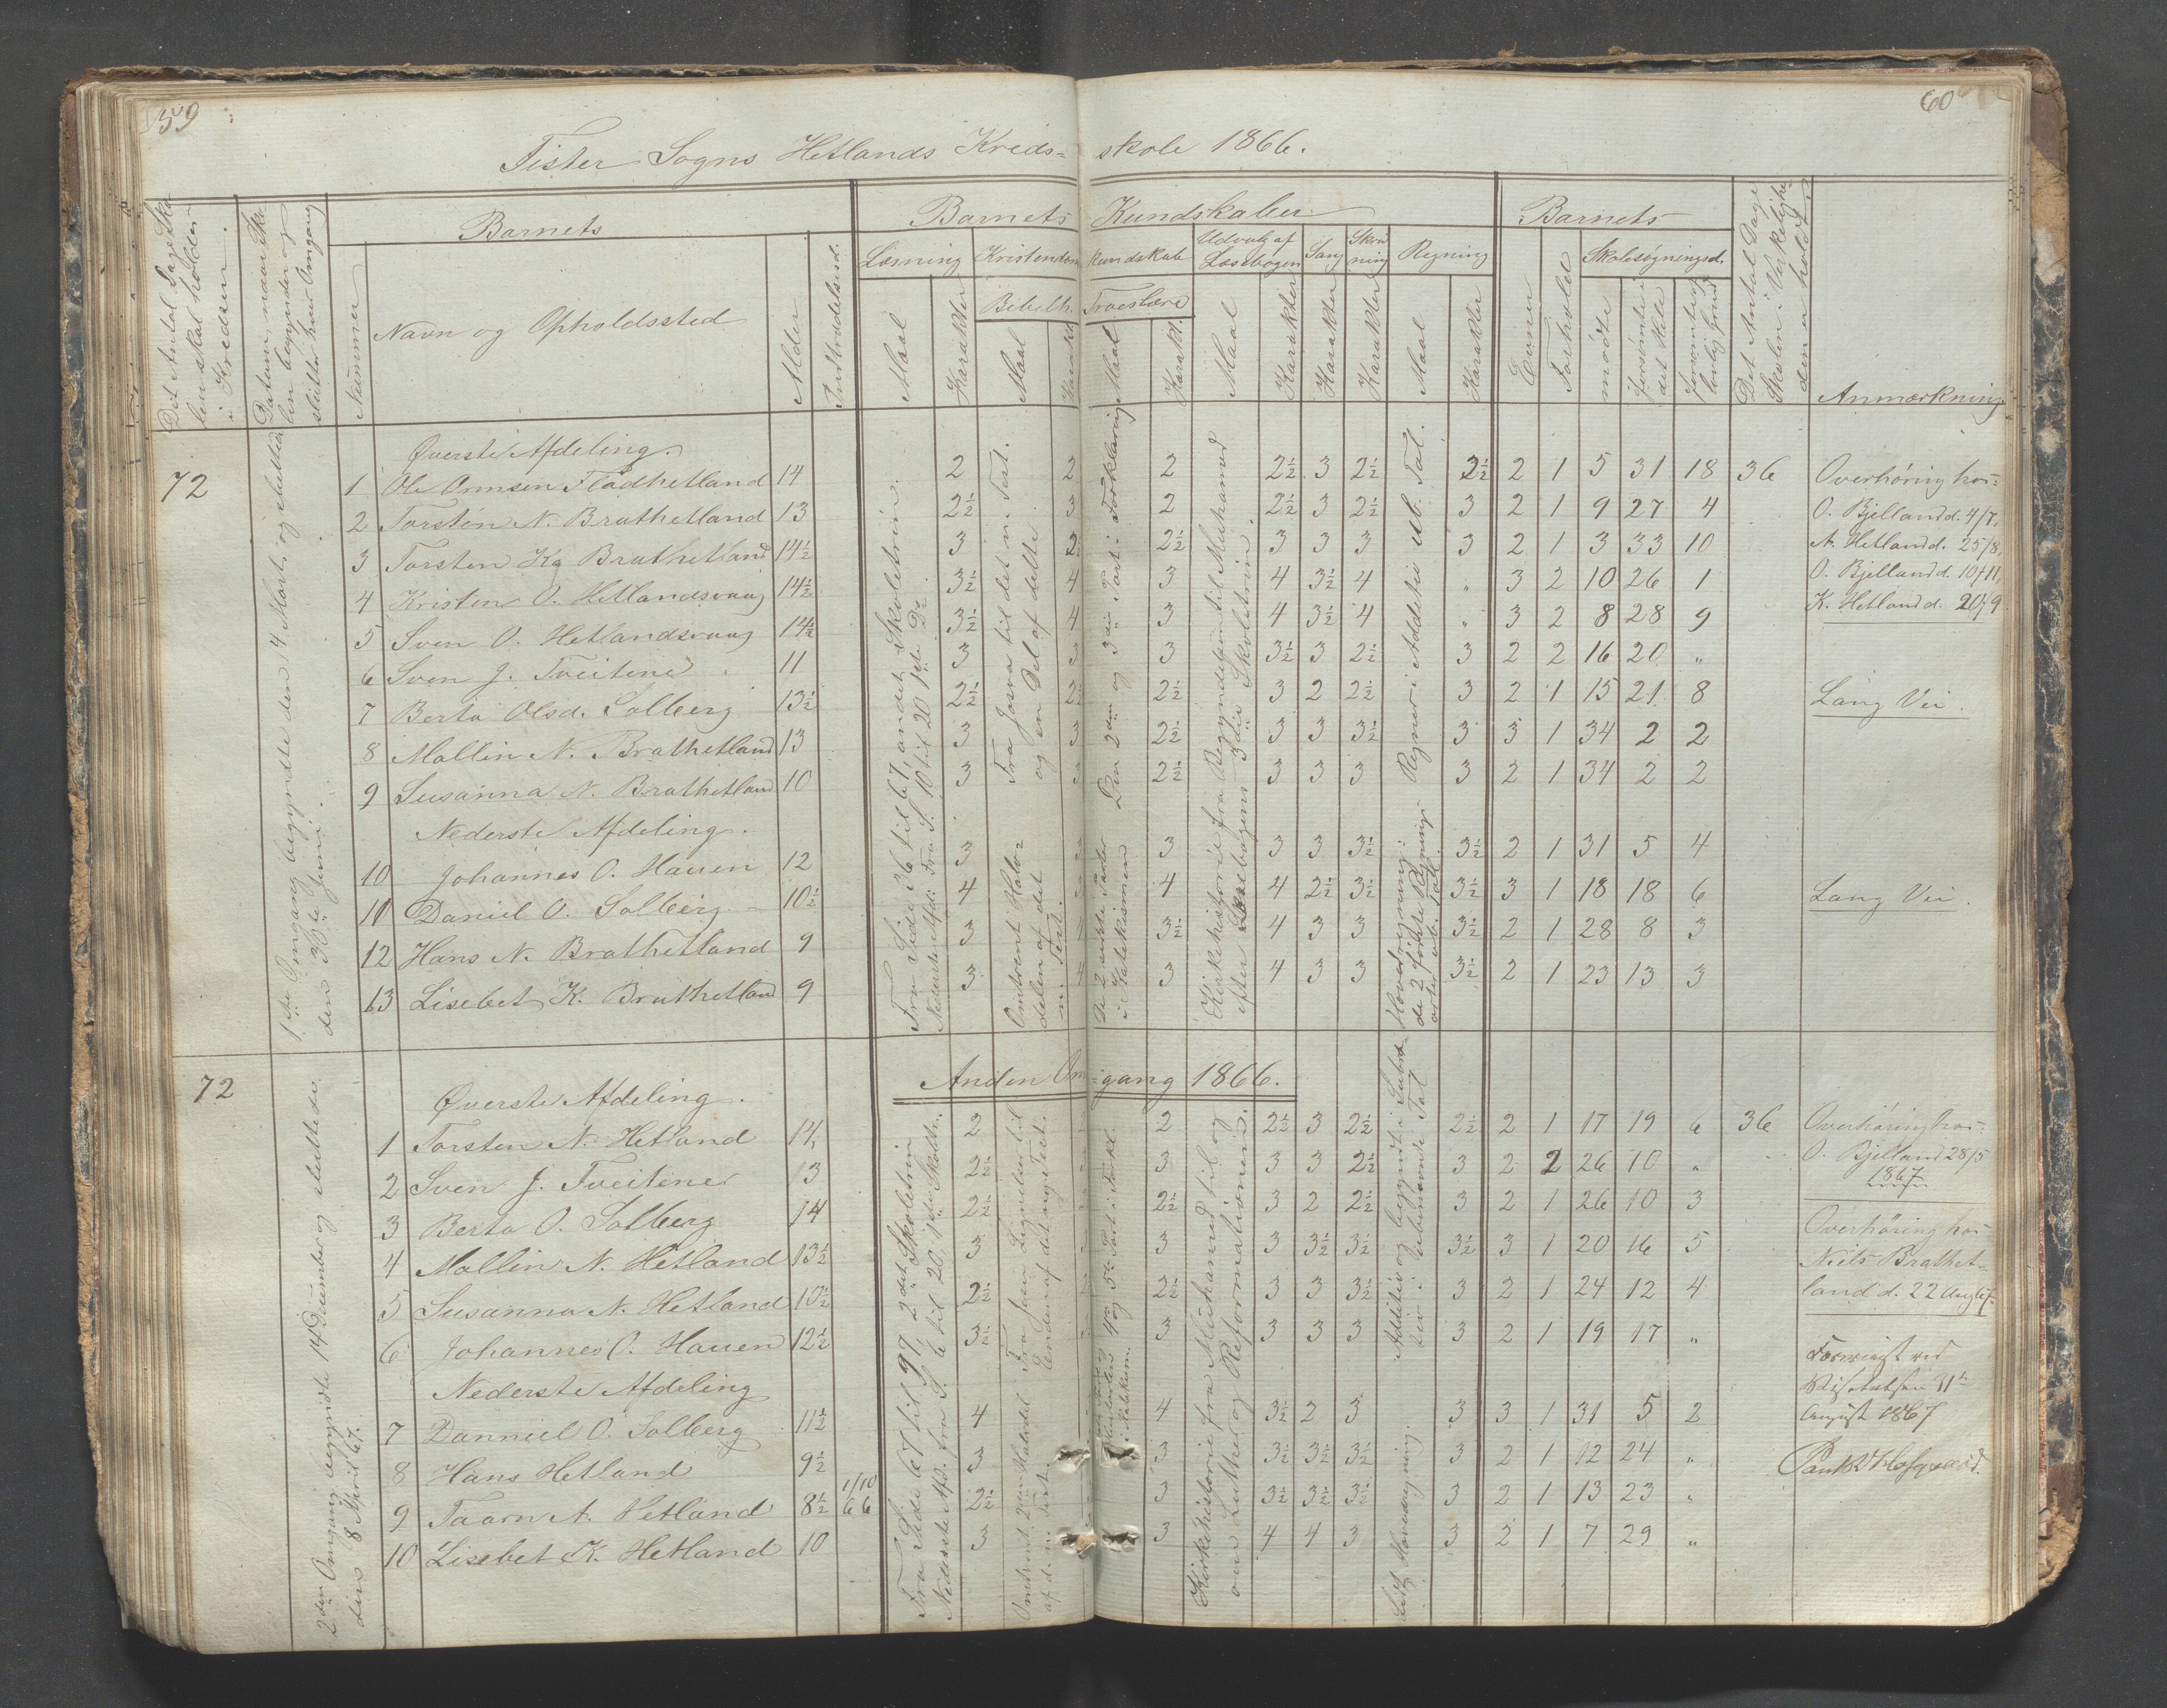 59
60
Fister Sogns Hetlands Kreds-skole 1866.
Det Antal Dage Skolen skal holdes i Kredsen.
Datum, naar Skolen begynder og slutter hver Omgang
Barnets
Nummer
Navn og Opholdssted
Alder
Indtrædelsesd.
Barnets Kundskaber
Læsning
Maal
Karakter
Kristendomskundskab
Bibelh.
Maal
Karakt.
Troeslære
Maal
Karakt.
Udvalg af Læsebogen
Maal
Karakter
Sang
Karakter
Skrivning
Karakter
Regning
Maal
Karakter
Barnets
Evner
Forhold
Skolesøgningsd.
mødte
forsømte i det Hele
forsømte af lovlig Grund
Det Antal Dage Skolen i Virkeligheden er holdt.
Anmærkning
72
1ste Omgang begyndte den 4 Marts og sluttede den 30te Juni.
Øverste Afdeling.
1 Ole Ormsen Fladhetland 14 2 2 2 2½ 3 2½ 2½ 2 1 5 31 18 36
2 Torsten N. Brathetland 13 2½ 3 2 2½ 3 2½ 3 2 1 9 27 4
3 Torsten Kg Brathetland 14½ 3 2½ 2½ 3 3 3 3 2 1 3 33 10
4 Kristen O. Hetlandsvaag 14½ 3½ 4 3 4 3½ 4 " 3 2 10 26 1
5 Sven O. Hetlandsvaag 14½ 3½ 4 3 4 3½ 4 " 3 2 8 28 9
6 Sven J. Tveitene 11 3 3 3 3½ 3 2½ 3 2 2 16 20 "
7 Berta Olsd. Solberg 13½ 2½ 2½ 2½ 3 2 2½ 3 2 1 15 21 8
8 Mallin N. Brathetland 13 3 3 2½ 3 3 3½ 3 3 1 34 2 2
9 Susanna N. Brathetland 10 3 3 2½ 3 3 3 3 2 1 34 2 2
Nederste Afdeling.
10 Johannes O. Hauen 12 3 3 3 3 3 3½ 3½ 2 1 31 5 4
11 Daniel O. Solberg 10½ 4 3 4 4 2½ 3½ 3½ 3 1 18 18 6
12 Hans N. Brathetland 9 3 4 3½ 4 3 3 3½ 2 1 28 8 3
13 Lisebet K. Brathetland 9 3 4 3 4 3 3 3½ 2 1 23 13 3
Fra Side 36 til 67, andet Skoletrin.
Nederste Afd: Fra S. 10 til 20 1ste Do.
Fra Josva til det n. Test. og en Del af dette.
Omtrent Halvdelen af det n. Test.
Den 2den og 3die Part i Forklaring
De 2 første Parter i Katekismen
Kirkehistorie fra Begyndelsen til Muhamed efter Læsebogens 3die Skoletrin.
Regner i Addition ub. Tal.
Hovedregning: de 2 første Regningsarter ub. Tal.
Overhøring hos:
O. Bjelland d. 4/7,
A. Hetland d. 25/8,
O. Bjelland d. 10/11,
K. Hetland d. 20/9
Lang Vei.
Lang Vei.
72
2den Omgang begyndte 14 December og sluttede den 8 April 67.
Anden Omgang 1866.
Øverste Afdeling.
1 Torsten N. Hetland 14, 2 2 2½ 3 2½ 2½ 2 1 17 19 6 36
2 Sven J. Tveitene 13 2½ 3 3 3 2½ 3 2 2 26 10 "
3 Berta O. Solberg 14 2½ 2½ 3 2 2½ 3 2 1 26 10 3
4 Mallin N. Hetland 13½ 3 3 3 3½ 3½ 3½ 3 1 20 16 5
5 Susanna N. Hetland 10½ 2½ 2½ 3 3 3½ 3 2 1 24 12 4
6 Johannes O. Hauen 12½ 3½ 3 3 3 3 3 2 1 19 17 "
Nederste Afdeling
7 Danniel O. Solberg 11½ 4 4 3½ 2 3 3 3 1 31 5 2
8 Hans Hetland 9½ 3 3 3½ 3½ 3½ 3 2 1 12 24 "
9 Taarn A. Hetland 8½ 1/10 66 2½ 3 3½ 3½ 3½ 3 2 1 13 23 "
10 Lisebet K. Hetland 10 3 3 4 4 3 3 2 1 7 29 "
Fra Side 67 til 97, 2det Skoletrin
Nederste Afd. fra S. 6 til 20, 1ste Skoletr.
Fra Jesu Lignelser til Enden af det nye Test.
Omtrent 2den Halvdel af d. n. Test.
4de og 5te Part i Forkl.
i Katekism.
Kirkehistorie fra Muhamed til og om Luther og Reformationen.
Addition og begyndt i Subtraktion i ubenævnte Tal
Lidt Hovedregning.
Overhøring hos:
O. Bjelland 28/5
1867
Overhøring hos
Niels Brathetland d. 22 Aug 67.
Foreviist ved
Visitatsen 31te
August 1867